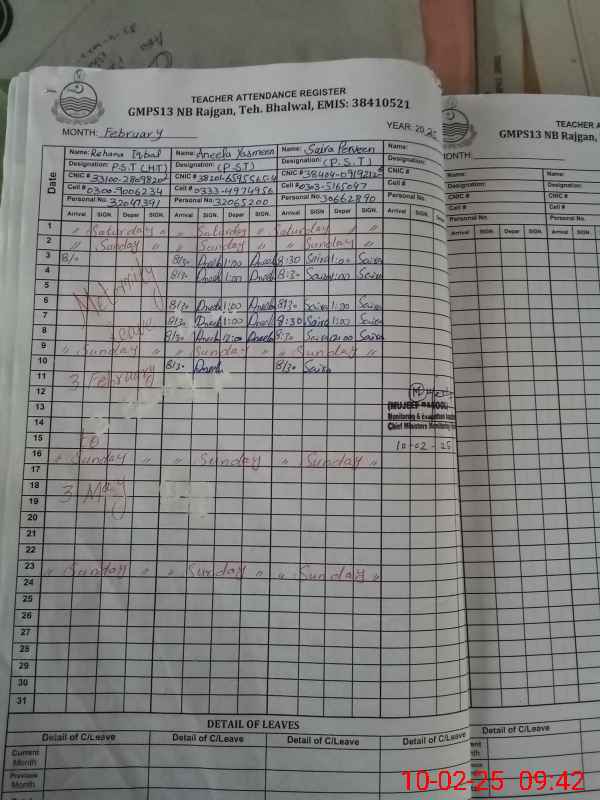 TEACHER ATTENDANCE REGISTER
GMPS13 NB Rajgan, Teh. Bhalwal, EMIS: 38410521
MONTH: February YEAR: 2025
Date
Name: Rehana Iqbal Name: Aneela Yasmeen Name: Saira Perveen Name:
Designation: P.S.T (HT) Designation: (P.S.T) Designation: (P.S.T) Designation:
CNIC # CNIC # CNIC # 38404-0919212 CNIC #
Cell # 0300-9006234 Cell # 0333-4974956 Cell # 0303-5165047 Cell #
Personal No. 32047391 Personal No. 32065200 Personal No. 30662890 Personal No.
Arrival SIGN. Depar SIGN. Arrival SIGN. Depar SIGN. Arrival SIGN. Depar SIGN. Arrival SIGN. Depar SIGN.
1 " Saturday " " Saturday " Saturday " "
2 " Sunday " " Sunday " " Sunday " "
3 8/30 Aneela 1:00 Aneela 8:30 Saira 1:00 Saira
4 8/30 Aneela 1:00 Aneela 8:30 Saira 1:00 Saira
5
6 8/30 Aneela 1:00 Aneela 8/30 Saira 1:00 Saira
7 8/30 Aneela 1:00 Aneela 8:30 Saira 1:00 Saira
8 8/30 Aneela 12:00 Aneela 8:30 Saira 12:00 Saira
Maternity
Leave
9 " Sunday " " Sunday " " Sunday "
10 8/30 Aneela 8/30 Saira
11 3 February
12
13
14
15 to
16 " Sunday " " Sunday " Sunday "
17
18 3 May
19
20
21
22
23 " Sunday " " Sunday " " Sunday "
24
25
26
27
28
29
30
31
Monitoring &
Chief Ministers Monitoring
10-02-25
DETAIL OF LEAVES
Detail of C/Leave Detail of C/Leave Detail of C/Leave Detail of C/Leave
Current Month
Previous Month
TEACHER A
GMPS13 NB Rajgan,
MONTH:
Name: Name:
Designation: Designation:
CNIC # CNIC #
Cell # Cell #
Personal No. Personal No.
Arrival SIGN. Depar SIGN. Arrival SIGN. Depar SIGN.
Detail of C/Leave Detail
Current Month
Previous Month
10-02-25 09:42